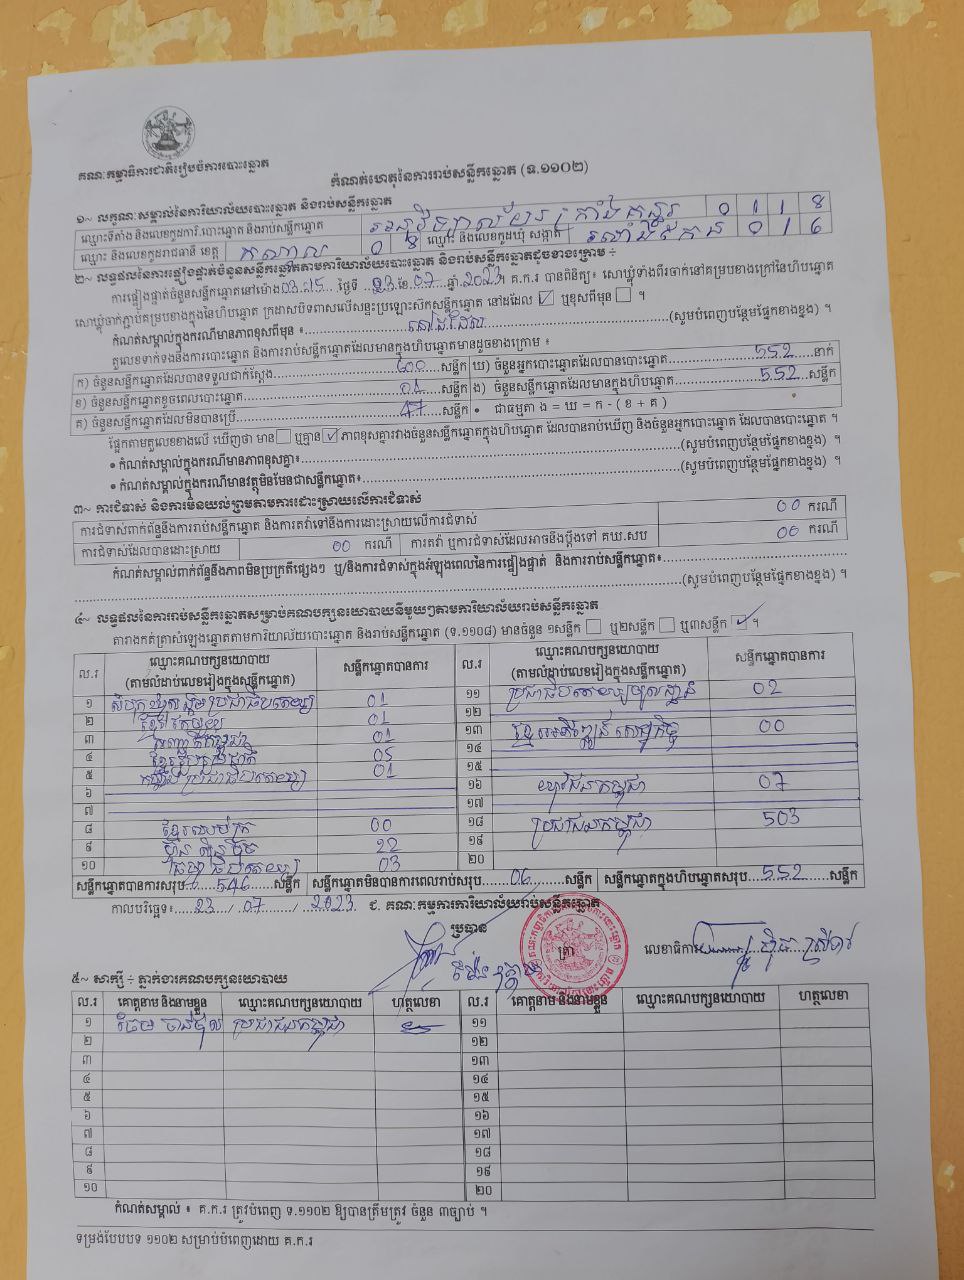 គណៈកម្មាធិការជាតិរៀបចំការបោះឆ្នោត
កំណត់ហេតុនៃការរាប់សន្លឹកឆ្នោត (ទ.១១០២)
១~ លក្ខណៈសម្គាល់នៃការិយាល័យបោះឆ្នោត និងរាប់សន្លឹកឆ្នោត
ឈ្មោះទីតាំង និងលេខកូដការិ.បោះឆ្នោត និងរាប់សន្លឹកឆ្នោត 0 1 1 8
ឈ្មោះ និងលេខកូដរាជធានី ខេត្ត កណ្តាល 0 8 ឈ្មោះ និងលេខកូដឃុំ សង្កាត់ 0 1 6
២~ លទ្ធផលនៃការផ្ទៀងផ្ទាត់ចំនួនសន្លឹកឆ្នោតតាមការិយាល័យបោះឆ្នោត និងរាប់សន្លឹកឆ្នោតដូចខាងក្រោម ÷
ការផ្ទៀងផ្ទាត់ចំនួនសន្លឹកឆ្នោតនៅម៉ោង 03:15 ថ្ងៃទី 23 ខែ 07 ឆ្នាំ 2023។ គ.ក.រ បានពិនិត្យ៖ សោឃ្លុំទាំងពីរចាក់នៅគម្របខាងក្រៅនៃហិបឆ្នោត
សោឃ្លុំចាក់ភ្ជាប់គម្របខាងក្នុងនៃហិបឆ្នោត ក្រដាសបិទពាសលើសន្ទះប្រឡោះសឹកសន្លឹកឆ្នោត នៅដដែល ☑ ឬខុសពីមុន ☐ ។
កំណត់សម្គាល់ក្នុងករណីមានភាពខុសពីមុន ៖ នៅដដែល (សូមបំពេញបន្ថែមផ្នែកខាងខ្នង) ។
តួលេខទាក់ទងនឹងការបោះឆ្នោត និងការរាប់សន្លឹកឆ្នោតដែលមានក្នុងហិបឆ្នោតមានដូចខាងក្រោម ៖
ក) ចំនួនសន្លឹកឆ្នោតដែលបានទទួលជាក់ស្តែង 600 សន្លឹក ឃ) ចំនួនអ្នកបោះឆ្នោតដែលបានបោះឆ្នោត 552 នាក់
ខ) ចំនួនសន្លឹកឆ្នោតខូចពេលបោះឆ្នោត 01 សន្លឹក ង) ចំនួនសន្លឹកឆ្នោតដែលមានក្នុងហិបឆ្នោត 552 សន្លឹក
គ) ចំនួនសន្លឹកឆ្នោតដែលមិនបានប្រើ 47 សន្លឹក • ជាធម្មតា ង = ឃ = ក - ( ខ + គ )
ផ្អែកតាមតួលេខខាងលើ ឃើញថា មាន ☐ ឬគ្មាន ☑ ភាពខុសគ្នារវាងចំនួនសន្លឹកឆ្នោតក្នុងហិបឆ្នោត ដែលបានរាប់ឃើញ និងចំនួនអ្នកបោះឆ្នោត ដែលបានបោះឆ្នោត ។
• កំណត់សម្គាល់ក្នុងករណីមានភាពខុសគ្នា៖ (សូមបំពេញបន្ថែមផ្នែកខាងខ្នង) ។
• កំណត់សម្គាល់ក្នុងករណីមានវត្ថុមិនមែនជាសន្លឹកឆ្នោត៖ (សូមបំពេញបន្ថែមផ្នែកខាងខ្នង) ។
៣~ ការជំទាស់ និងការមិនយល់ព្រមតាមការដោះស្រាយលើការជំទាស់
ការជំទាស់ពាក់ព័ន្ធនឹងការរាប់សន្លឹកឆ្នោត និងការតវ៉ាទៅនឹងការដោះស្រាយលើការជំទាស់ 00 ករណី
ការជំទាស់ដែលបានដោះស្រាយ 00 ករណី ការតវ៉ា ឬការជំទាស់ដែលអាចនឹងប្តឹងទៅ គឃ.សប 00 ករណី
កំណត់សម្គាល់ពាក់ព័ន្ធនឹងភាពមិនប្រក្រតីផ្សេងៗ ឬ/និងការជំទាស់ក្នុងអំឡុងពេលនៃការផ្ទៀងផ្ទាត់ និងការរាប់សន្លឹកឆ្នោត៖
(សូមបំពេញបន្ថែមផ្នែកខាងខ្នង) ។
៤~ លទ្ធផលនៃការរាប់សន្លឹកឆ្នោតសម្រាប់គណបក្សនយោបាយនីមួយៗតាមការិយាល័យរាប់សន្លឹកឆ្នោត
តារាងកត់ត្រាសំឡេងឆ្នោតតាមការិយាល័យបោះឆ្នោត និងរាប់សន្លឹកឆ្នោត (ទ.១១០៨) មានចំនួន ១សន្លឹក ☐ ឬ២សន្លឹក ☐ ឬ៣សន្លឹក ☑ ។
ល.រ ឈ្មោះគណបក្សនយោបាយ (តាមលំដាប់លេខរៀងក្នុងសន្លឹកឆ្នោត) សន្លឹកឆ្នោតបានការ ល.រ ឈ្មោះគណបក្សនយោបាយ (តាមលំដាប់លេខរៀងក្នុងសន្លឹកឆ្នោត) សន្លឹកឆ្នោតបានការ
១ សំបុកឃ្មុំសង្គមប្រជាធិបតេយ្យ 01 ១១ 02
២ 01 ១២
៣ 01 ១៣ ខ្មែរអភិវឌ្ឍន៍សេដ្ឋកិច្ច 00
៤ ខ្មែររួបរួមជាតិ 05 ១៤
៥ 01 ១៥
៦ ១៦ យុវជនកម្ពុជា 07
៧ ១៧
៨ 00 ១៨ ប្រជាជនកម្ពុជា 503
៩ ហ៊្វុនស៊ិនប៉ិច 22 ១៩
១០ 03 ២០
សន្លឹកឆ្នោតបានការសរុប 546 សន្លឹក សន្លឹកឆ្នោតមិនបានការពេលរាប់សរុប 06 សន្លឹក សន្លឹកឆ្នោតក្នុងហិបឆ្នោតសរុប 552 សន្លឹក
កាលបរិច្ឆេទ៖ 23 / 07 / 2023 ជ. គណៈកម្មការការិយាល័យរាប់សន្លឹកឆ្នោត
ប្រធាន
ត្រា លេខាធិការ
៥~ សាក្សី ÷ ភ្នាក់ងារគណបក្សនយោបាយ
ល.រ គោត្តនាម និងនាមខ្លួន ឈ្មោះគណបក្សនយោបាយ ហត្ថលេខា ល.រ គោត្តនាម និងនាមខ្លួន ឈ្មោះគណបក្សនយោបាយ ហត្ថលេខា
១ ប្រជាជនកម្ពុជា ១១
២ ១២
៣ ១៣
៤ ១៤
៥ ១៥
៦ ១៦
៧ ១៧
៨ ១៨
៩ ១៩
១០ ២០
កំណត់សម្គាល់ ៖ គ.ក.រ ត្រូវបំពេញ ទ.១១០២ ឱ្យបានត្រឹមត្រូវ ចំនួន ៣ច្បាប់ ។
ទម្រង់បែបបទ ១១០២ សម្រាប់បំពេញដោយ គ.ក.រ